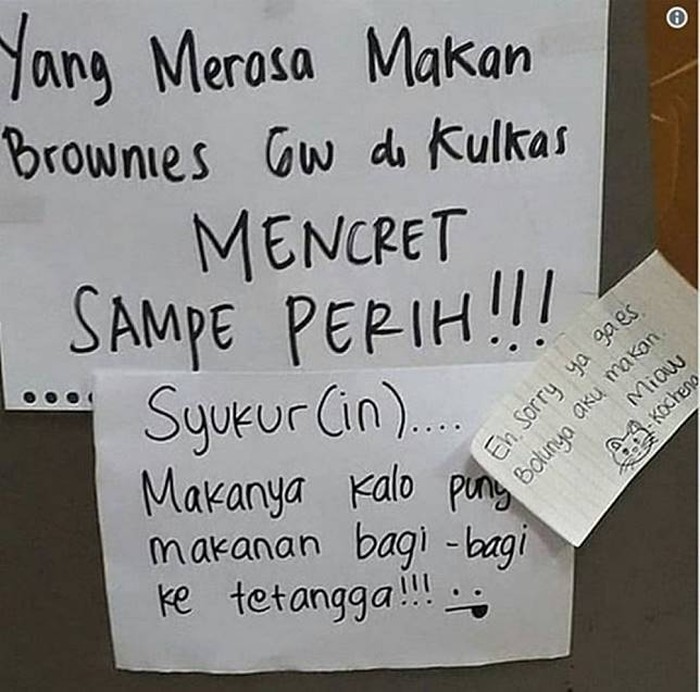 Yang Merasa Makan
Brownies Gw di Kulkas
MENCRET
SAMPE PERIH!!!
....
Syukur(in)....
Makanya kalo puny
makanan bagi-bagi
ke tetangga!!!
Eh, Sorry ya gaes.
Bolunya aku makan.
Miauw
-Kocheng